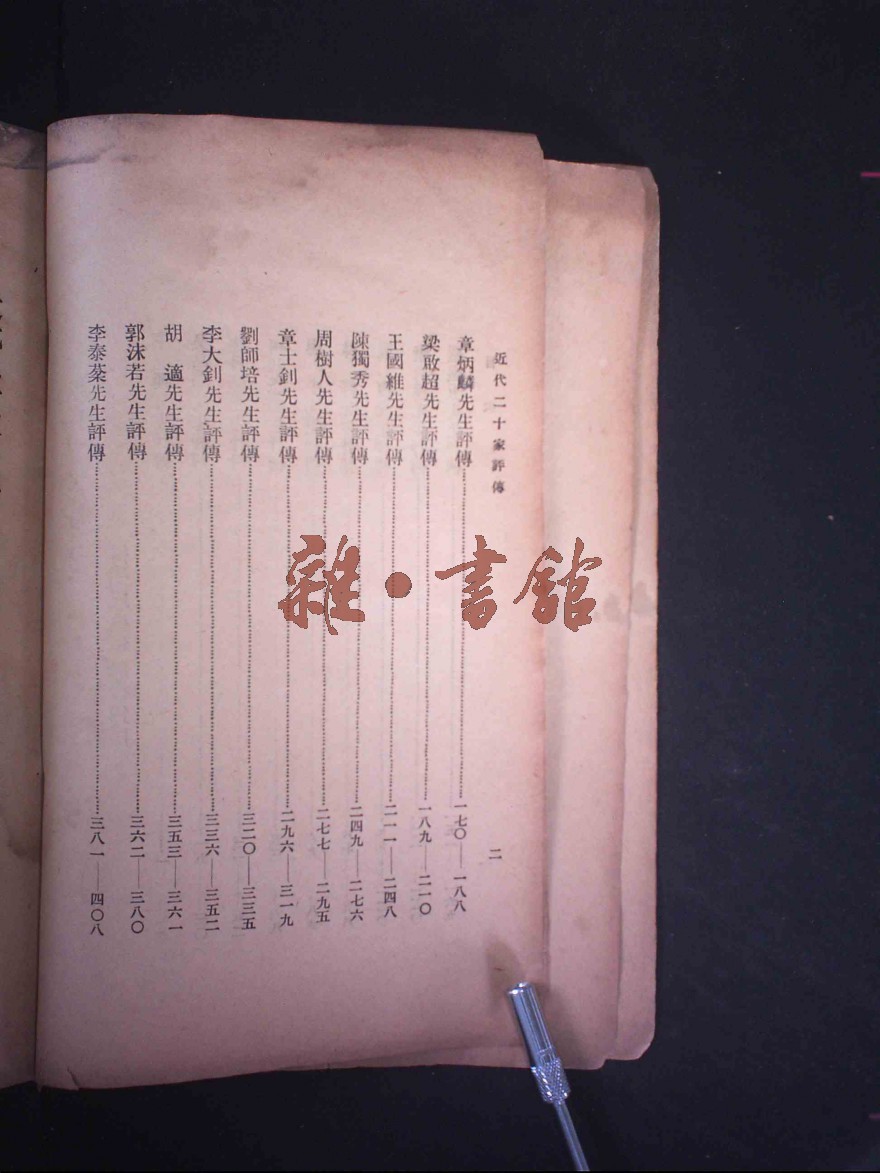 近代二十家評傳
二
章炳麟先生評傳……一七〇——一八八
梁啟超先生評傳……一八九——二一〇
王國維先生評傳……二一一——二四八
陳獨秀先生評傳……二四九——二七六
周樹人先生評傳……二七七——二九五
章士釗先生評傳……二九六——三一九
劉師培先生評傳……三二〇——三三五
李大釗先生評傳……三三六——三五二
胡　適先生評傳……三五三——三六一
郭沫若先生評傳……三六二——三八〇
李泰棻先生評傳……三八一——四〇八
雜·書館